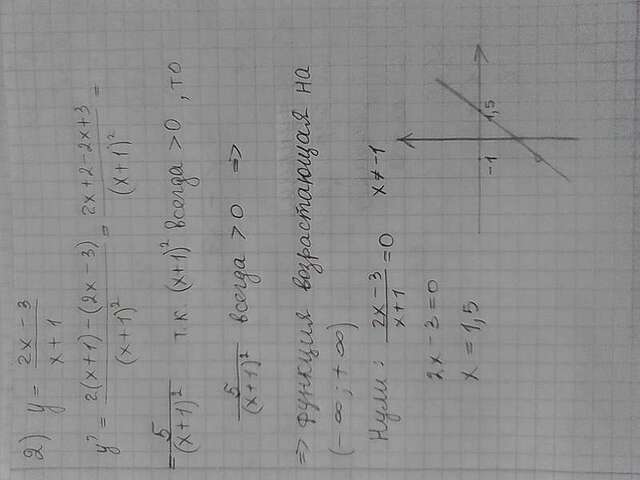 2) y = (2x - 3)/(x + 1)
y' = (2(x+1) - (2x - 3))/(x+1)² = (2x + 2 - 2x + 3)/(x+1)² =
= 5/(x+1)² т.к. (x+1)² всегда > 0 , то
5/(x+1)² всегда > 0 ⇒
⇒ функция возрастающая на
(-∞; +∞)
Нули: (2x - 3)/(x + 1) = 0 x ≠ -1
2x - 3 = 0
x = 1,5
-1 1,5